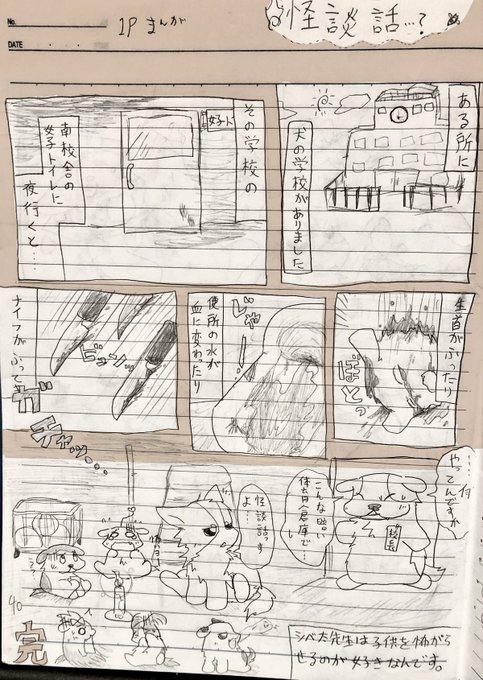 No.
DATE
1P まんが
怪談話…?
ある所に
犬の学校がありました
その学校の
女子トイレ
南校舎の
女子トイレに
夜行くと…
生首がふったり
ぼとっ
じゃー
便所の水が
血に変わったり
ナイフがふってきて
ビュッ
ガチャッ…
…何
やってんですか
こんな暗い
体育倉庫で
校長
怪談話っす
よ…
シベた先生は子供を怖がら
せるのが好きなんです。
完